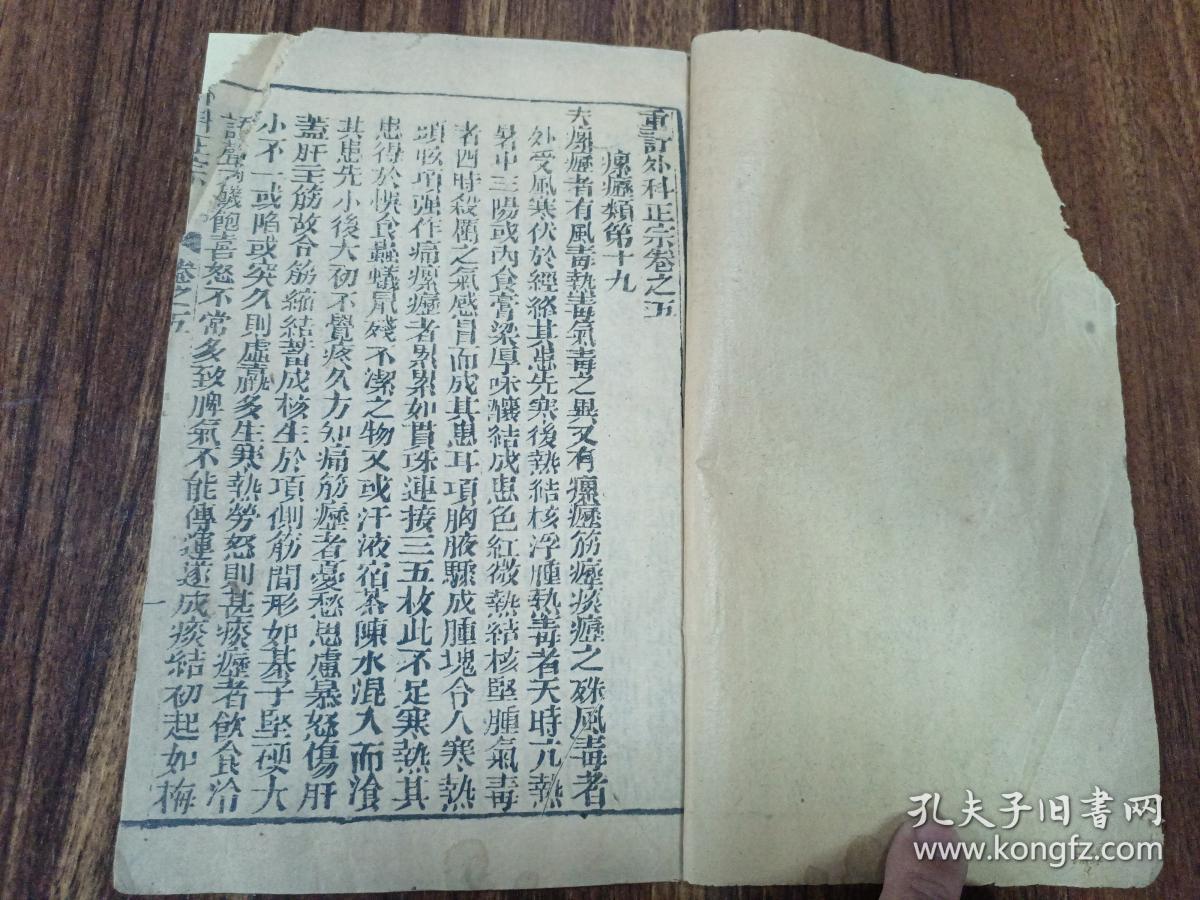 重訂外科正宗卷之五
瘰癧類第十九
夫瘰癧者有風毒熱毒氣毒之異又有瘰癧筋癧痰癧之殊風毒者
外受風寒伏於經絡其患先寒後熱結核浮腫熱毒者天時亢熱
暑中三陽或內食膏粱厚味釀結成患色紅微熱結核堅腫氣毒
者四時殺厲之氣感冒而成其患耳項胸腋驟成腫塊令人寒熱
頭眩項强作痛瘰癧者累累如貫珠連接三五枚此不足寒熱其
患得於悞食蟲蟻鼠殘不潔之物又或汗液宿茶陳水混入而飡
其患先小後大初不覺疼久方知痛筋癧者憂愁思慮暴怒傷肝
蓋肝主筋故令筋縮結蓄成核生於項側筋間形如棊子堅硬大
小不一或陷或突久則虛羸多生寒熱勞怒則甚痰癧者飲食冷
飢飽喜怒不常多致脾氣不能傳運遂成痰結初起如梅
科正宗 卷之五 一
孔夫子旧书网
www.kongfz.com